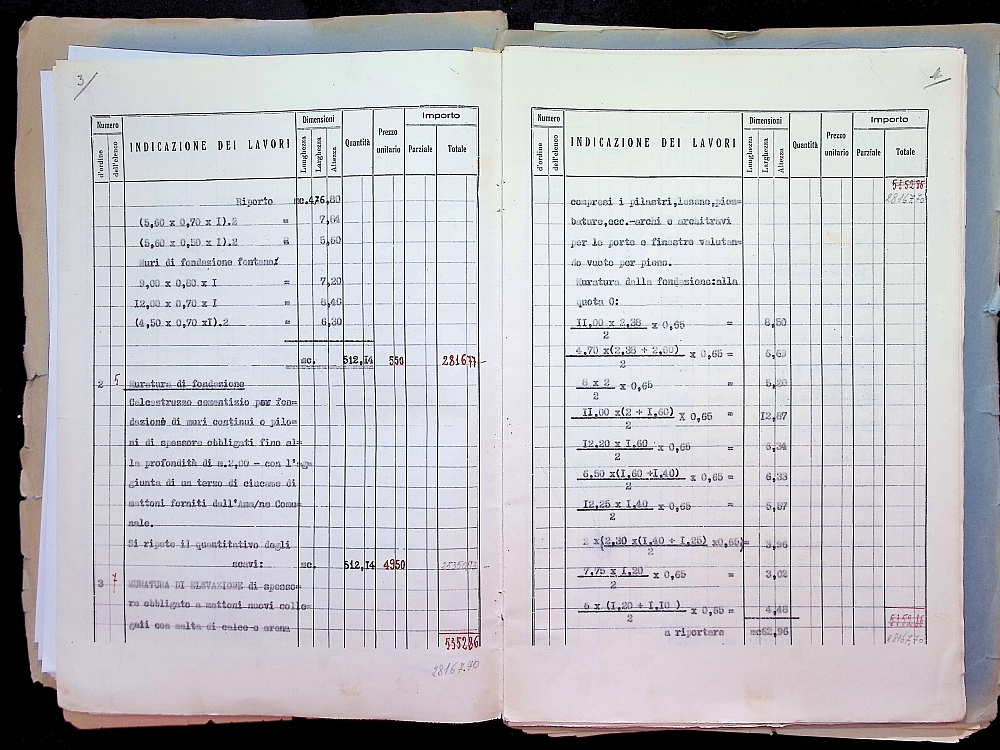 3/
Numero
d'ordine
dell'elenco
INDICAZIONE DEI LAVORI
Dimensioni
Lunghezza
Larghezza
Altezza
Quantità
Prezzo
unitario
Importo
Parziale
Totale
Riporto mc.476,80
(5,60 x 0,70 x I).2 = 7,84
(5,60 x 0,50 x I).2 = 5,60
Muri di fondazione fontana:
9,00 x 0,80 x I = 7,20
I2,00 x 0,70 x I = 8,40
(4,50 x 0,70 xI).2 = 6,30
mc. 512,14 550 281677
2 5 Muratura di fondazione
Calcestruzzo cementizio per fon=
dazione di muri continui o pilo=
ni di spessore obbligati fino al=
la profondità di m.2,00 - con l'ag=
giunta di un terzo di
mattoni forniti dall'Amm/ne Comu=
nale.
Si ripete il quantitativo degli
scavi: mc. 512,14 4950
3 7 MURATURA DI ELEVAZIONE di spesso=
re obbligato a mattoni nuovi colle=
gati con malta di calce e arena
535286
28167.70
4
Numero
d'ordine
dell'elenco
INDICAZIONE DEI LAVORI
Dimensioni
Lunghezza
Larghezza
Altezza
Quantità
Prezzo
unitario
Importo
Parziale
Totale
28167.70
compresi i pilastri,lesene,piom=
bature,ecc.-archi e architravi
per le porte e finestre valutan=
do vuoto per pieno.
Muratura dalla fondazione:alla
quota 0:
II,00 x 2,38 x 0,65 = 8,50
2
4,70 x(2,38 + 2,00) x 0,65 = 6,63
2
8 x 2 x 0,65 = 5,20
2
II,00 x(2 + I,60) X 0,65 = I2,87
2
I2,20 x I,60 x 0,65 = 6,34
2
6,50 x(I,60 +I,40) x 0,65 = 6,33
2
I2,25 x I,40 x 0,65 = 5,57
2
2 x(2,30 x(I,40 + I,25) x0,65)= 3,96
2
7,75 x I,20 x 0,65 = 3,02
2
6 x (I,20 + I,I0 ) x 0,65 = 4,48
2
a riportare mc62,96
28167,70